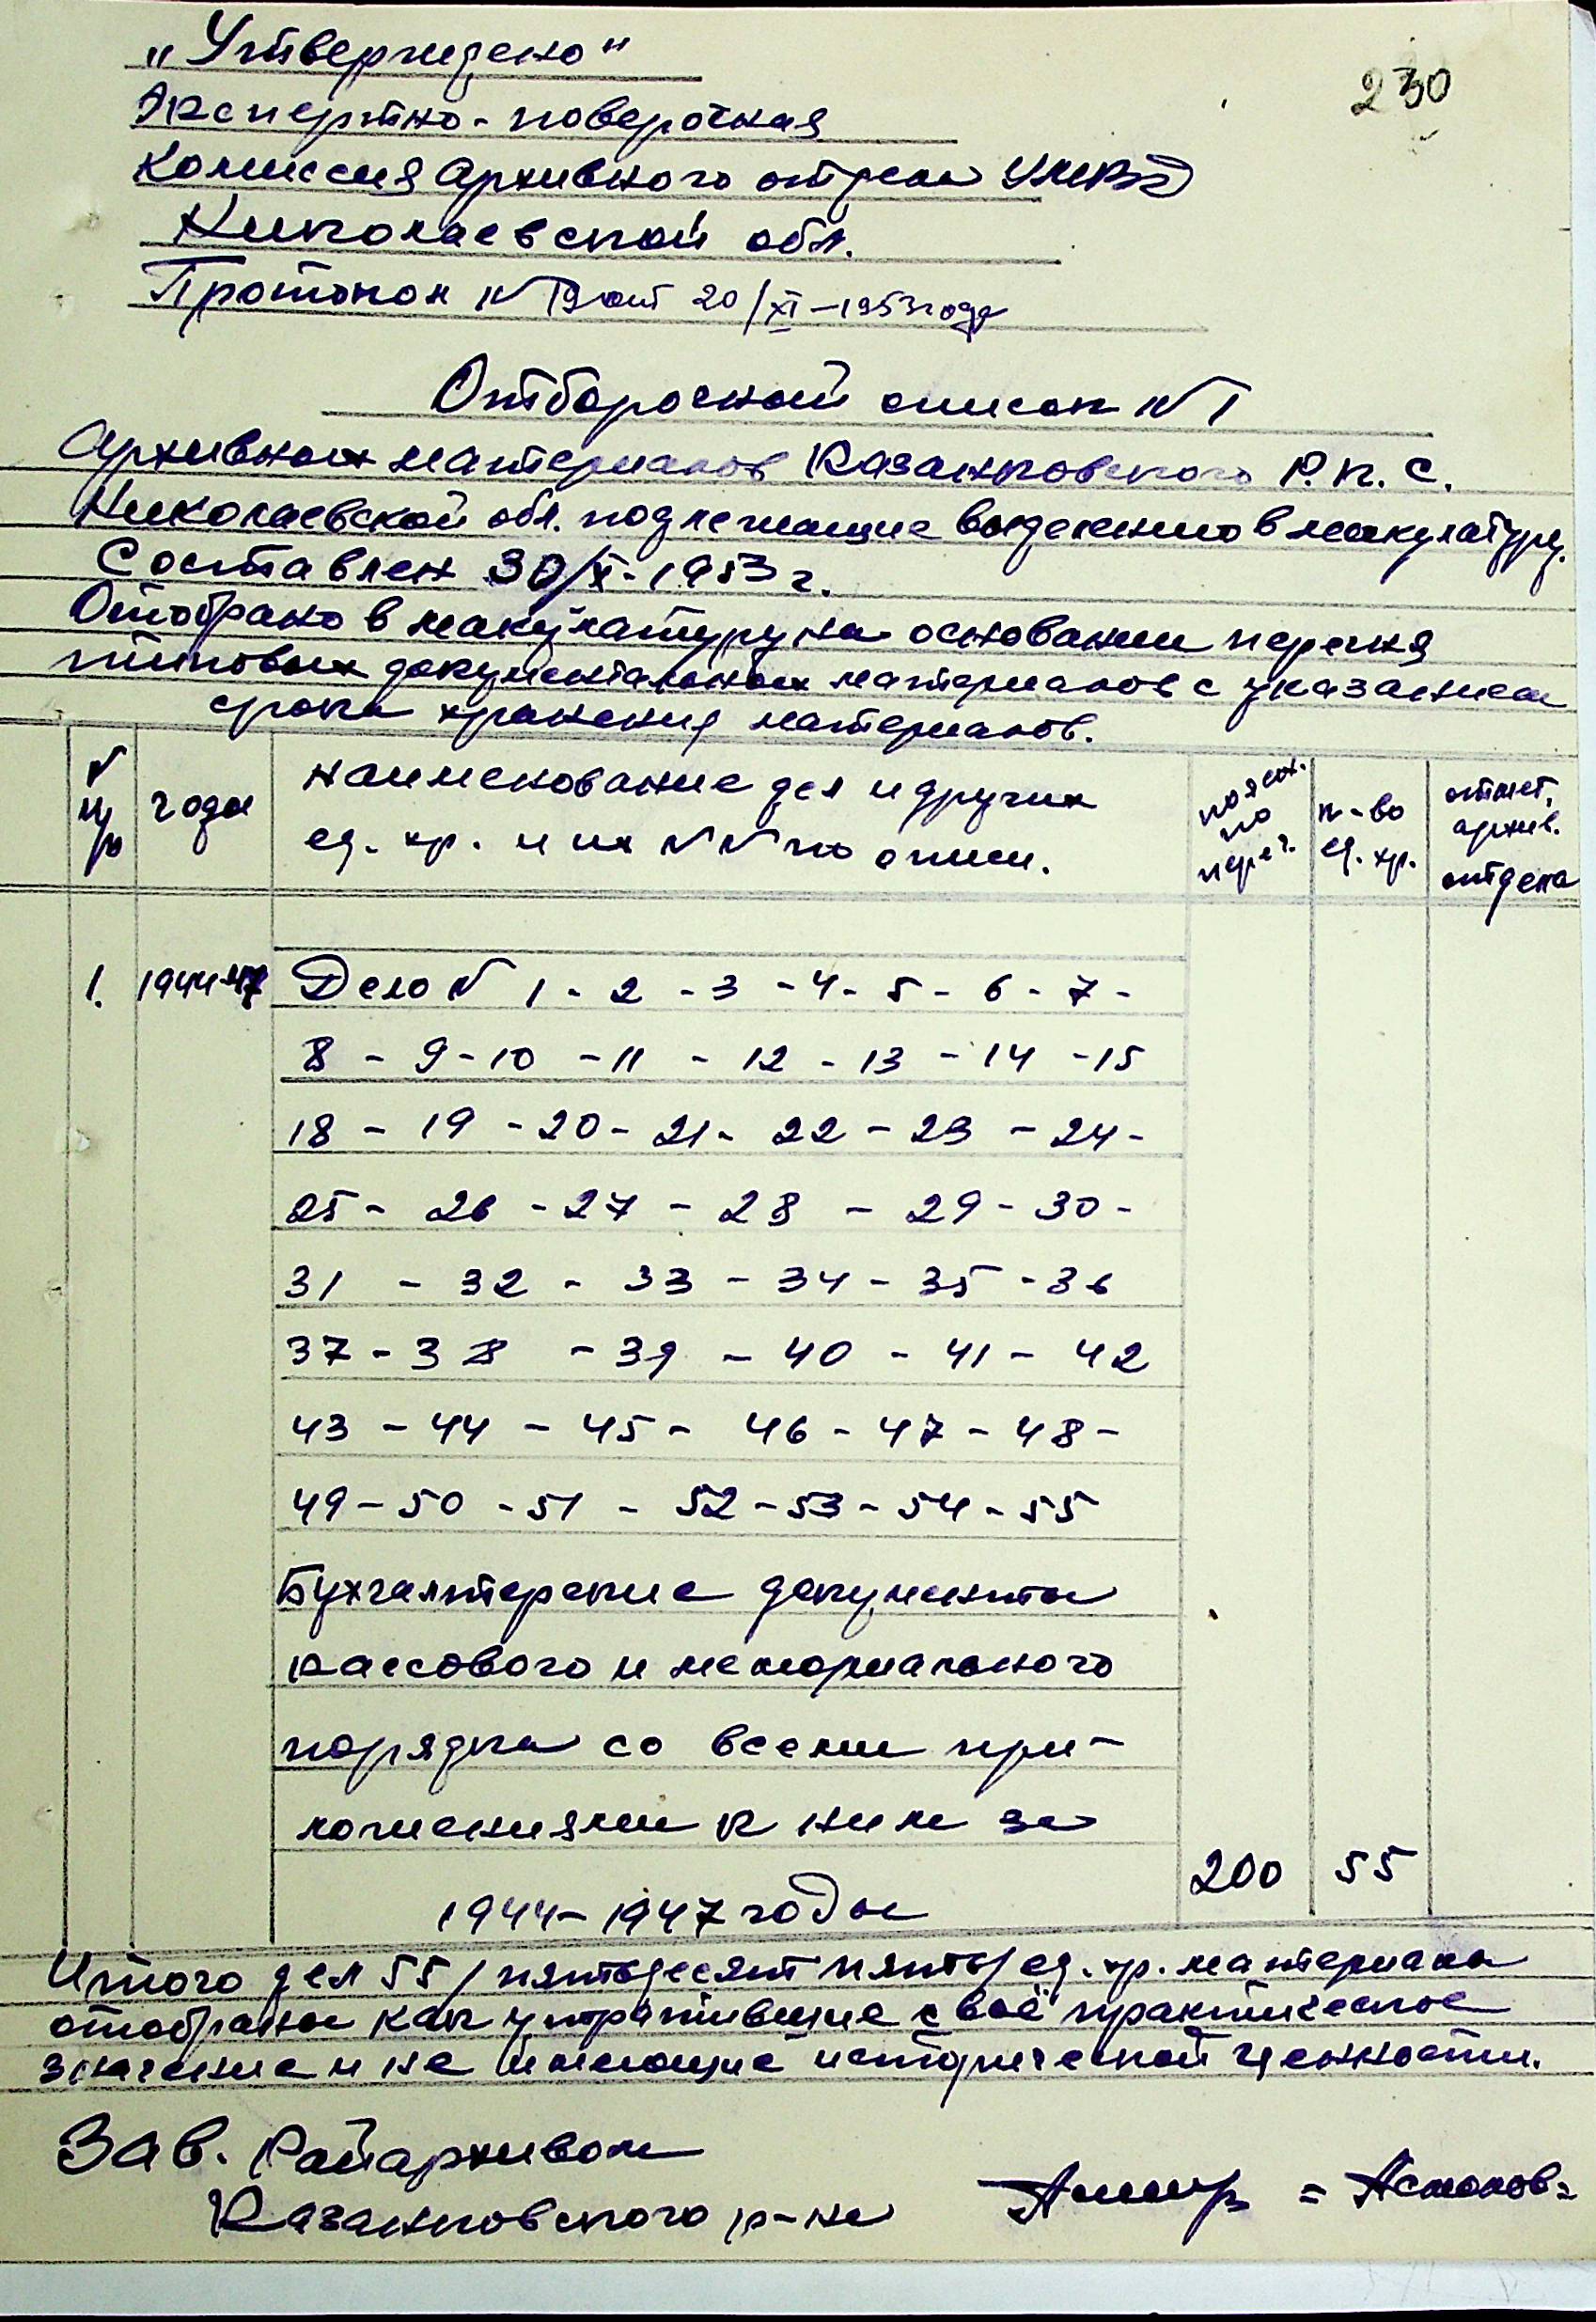 230
„Утверждено"
Экспертно-поверочная
комиссия архивного отдела УМВД
Николаевской обл.
Протокол № 19 от 20/XI-1953 года
Отборочный список № 1
Архивных материалов Казанковского Р.п.с.
Николаевской обл. подлежащие выделению в макулатуру.
Составлен 30/X-1953 г.
Отобрано в макулатуру на основании перечня
типовых документальных материалов с указанием
срока хранения материалов.
№ п/п
годы
наименование дел и других
ед. хр. и их №№ по описи.
по
переч.
к-во
ед. хр.
отмет.
архив.
отдела
1. 1944-47 Дело № 1 - 2 - 3 - 4 - 5 - 6 - 7 -
8 - 9 - 10 - 11 - 12 - 13 - 14 - 15
18 - 19 - 20 - 21 - 22 - 23 - 24 -
25 - 26 - 27 - 28 - 29 - 30 -
31 - 32 - 33 - 34 - 35 - 36
37 - 38 - 39 - 40 - 41 - 42
43 - 44 - 45 - 46 - 47 - 48 -
49 - 50 - 51 - 52 - 53 - 54 - 55
Бухгалтерские документы
кассового и мемориального
порядка со всеми при-
ложениями к ним за
1944-1947 годы 200 55
Итого дел 55 /пятьдесят пять/ ед. хр. материала
отобраны как утратившие своё практическое
значение и не имеющие исторической ценности.
Зав. Райархивом
Казанковского р-на